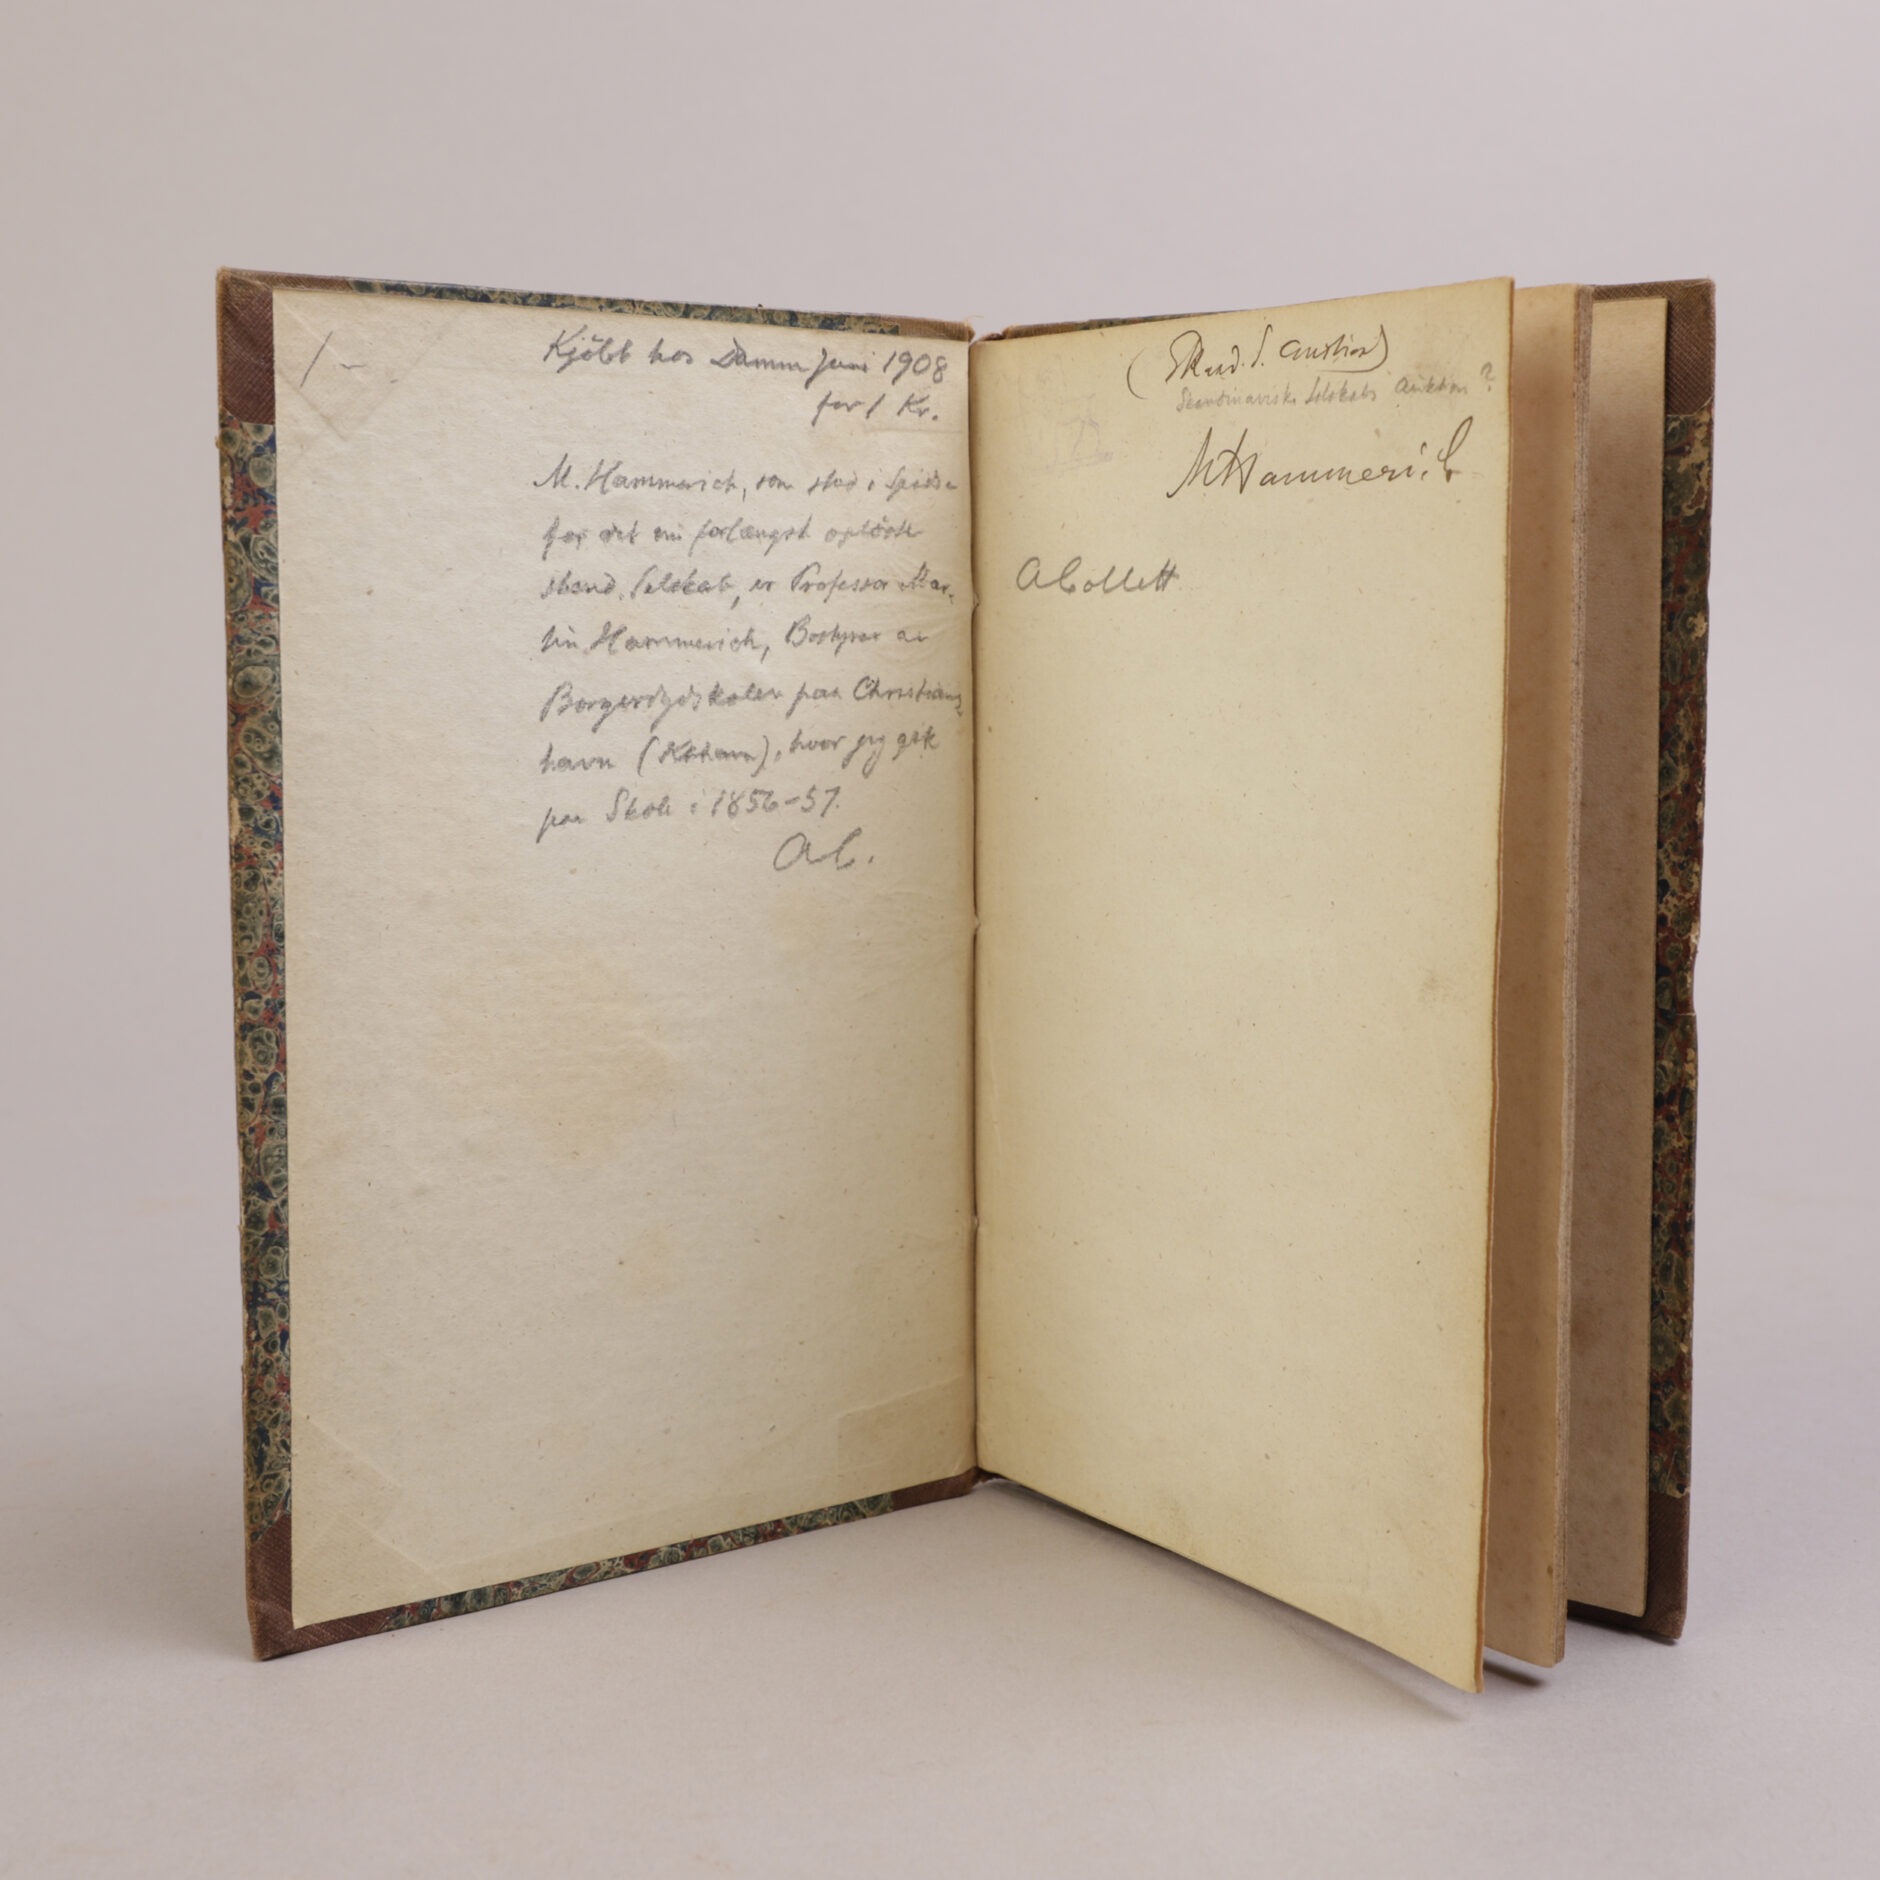 1 -
Kjöbt hos Damm Juni 1908
for 1 Kr.
M. Hammerich, som stod i Spidse
for det nu forlængst oplöste
skand. Selskab, er Professor Mar-
tin Hammerich, Bestyrer av
Borgerdydskolen paa Christians-
havn (Kbhavn), hvor jeg gik
paa Skole i 1856-57.
AC.
(Skand. S. Auction)
Skandinaviske Selskabs Auktion?
MHammerich
ACollett